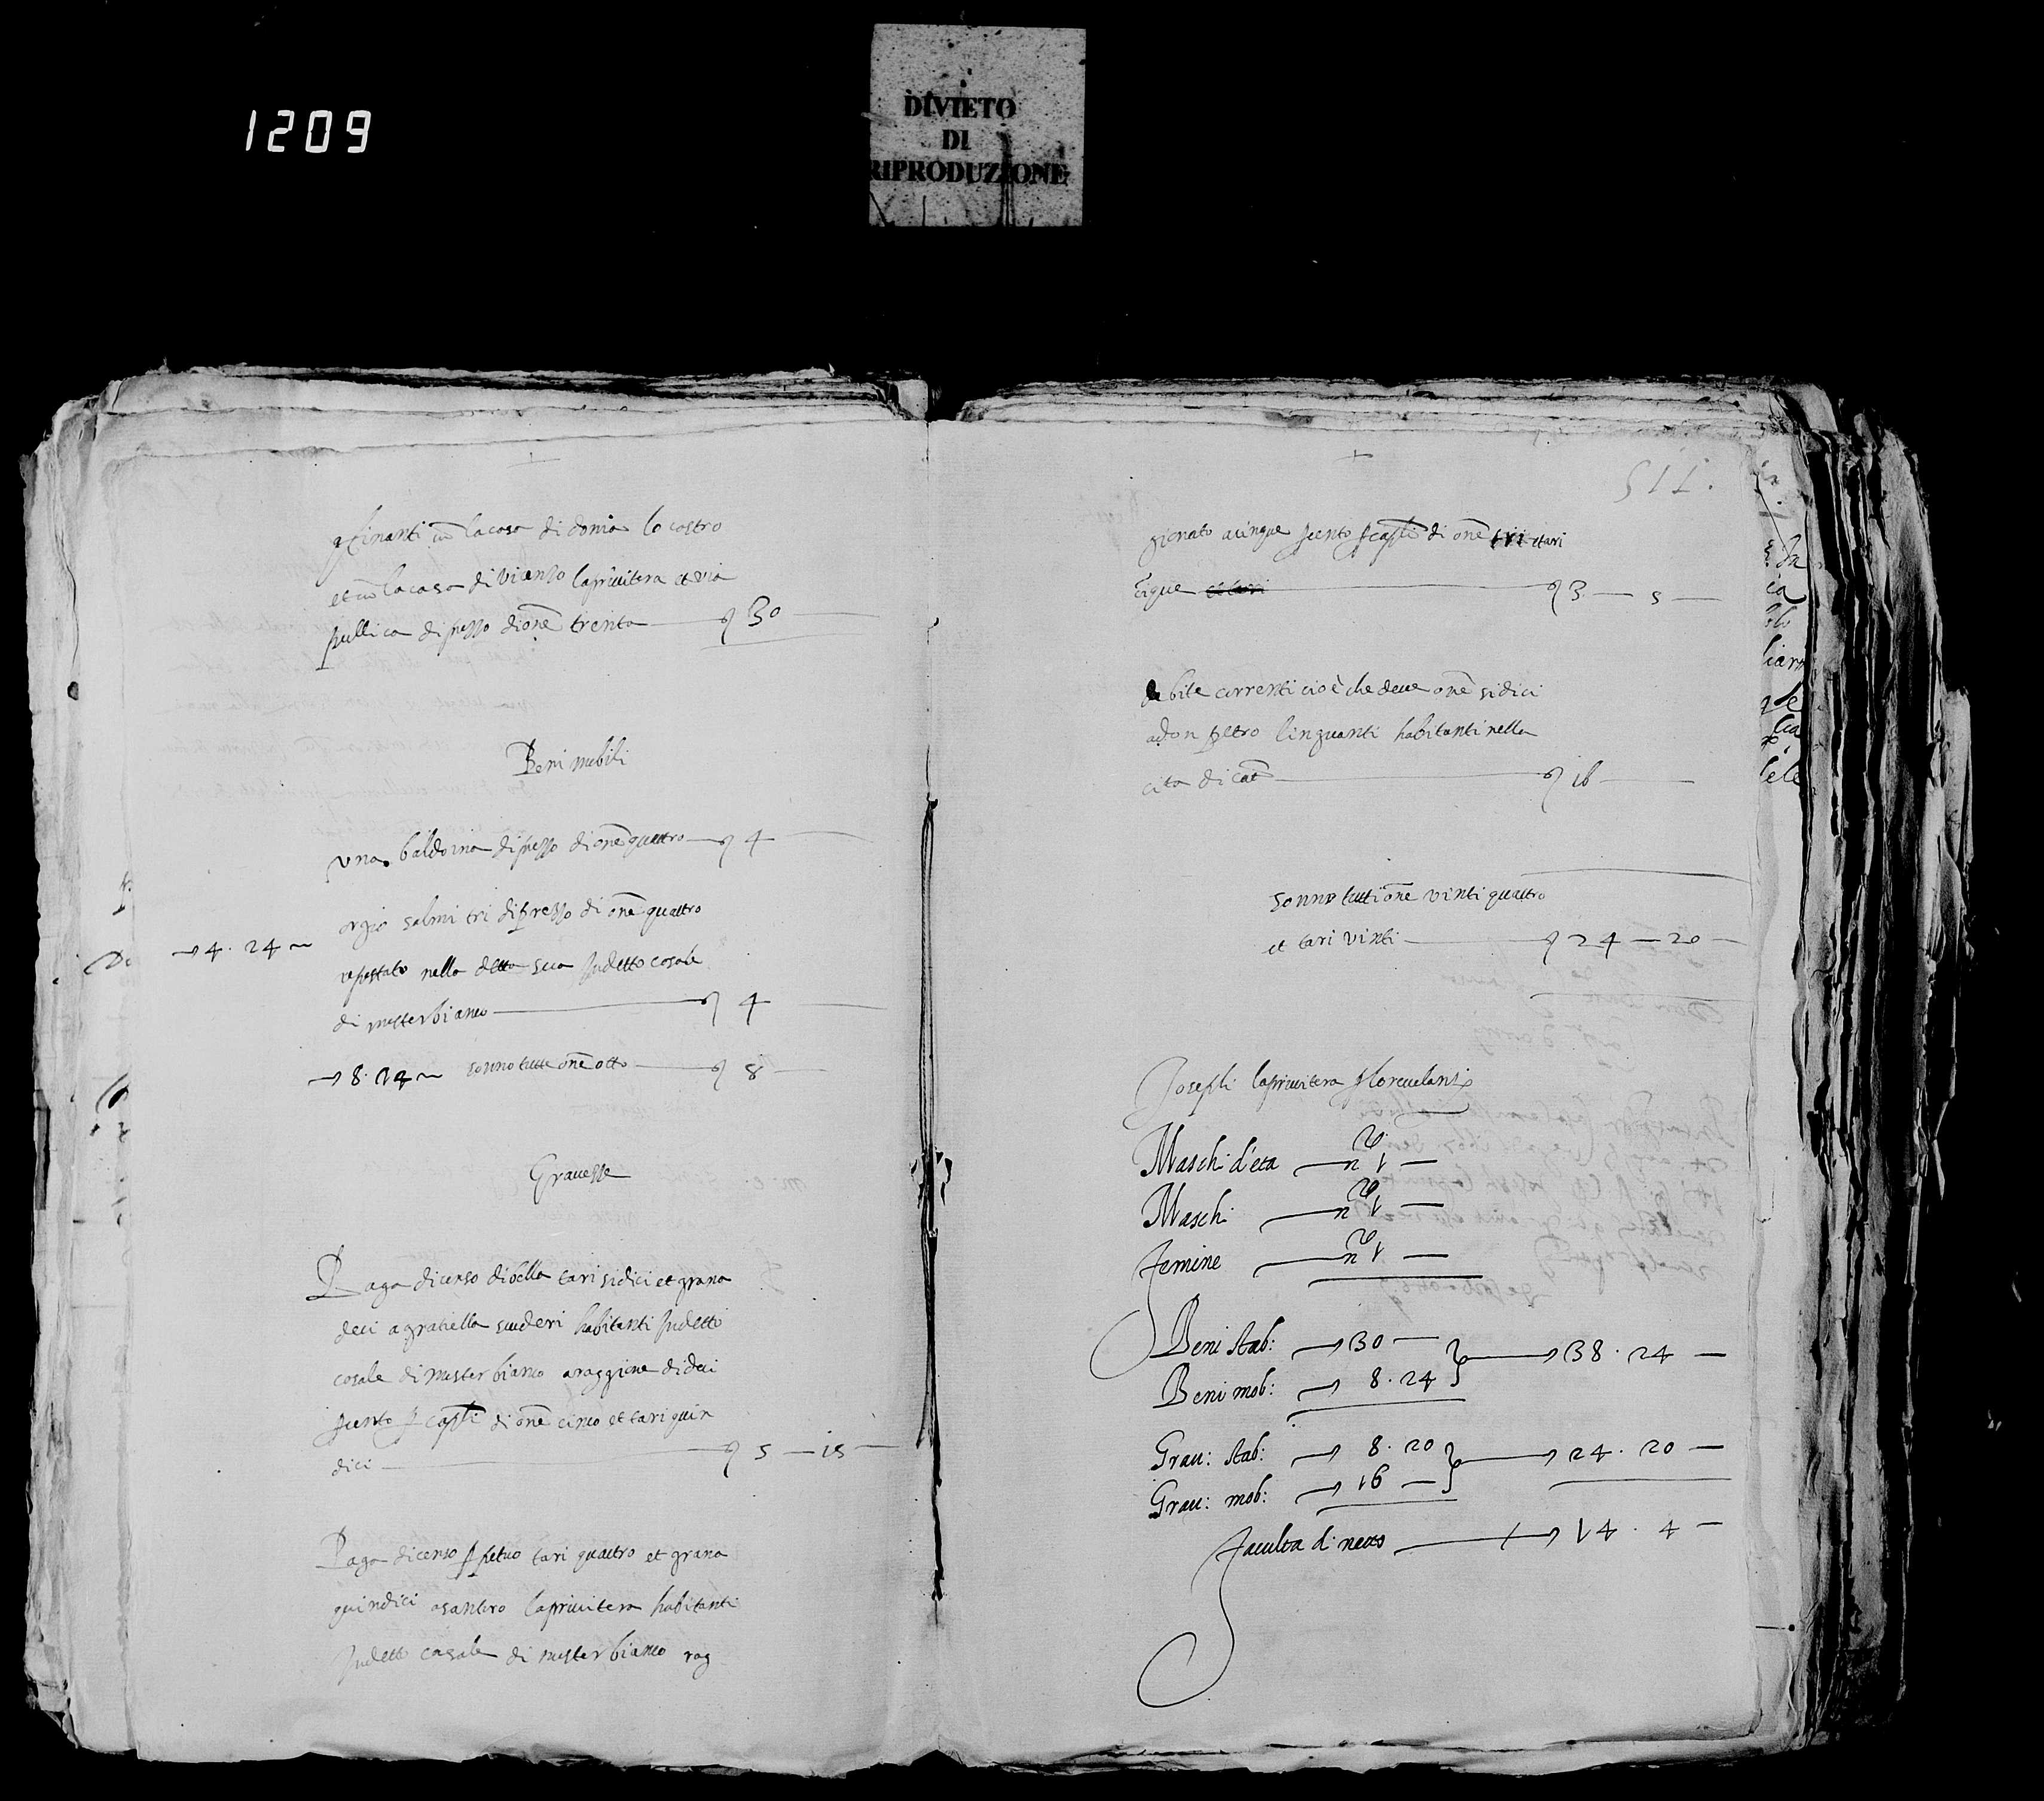 1209
DIVIETO
DI
RIPRODUZIONE
cōfinanti cū la casa di donia lo castro
et cū la casa di Vicenzo laprivitera et via
publica di prezzo di onē trenta 30
Beni mobili
una baldoina di prezzo di onē quattro 4
orgio salmi tri di prezzo di onē quattro
4. 24
repostato nella detta sua in detto casale
di misterbianco 4
8. 24 sonno tutte onē otto 8
Gravezze
Paga di censo di bolla tari sidici et grana
deci a gratiella scuderi habitanti in detto
casale di misterbianco a raggione di deci
per cento capli di onē cinco et tari quin
dici 5 — 15
Paga di censo ppetuo tari quattro et grana
quindici a santoro laprivitera habitanti
in detto casale di misterbianco rag
511.
gionato a cinque per cento capli di onē tri et tari
cīque et tari 3 — 5
debite currenti cioè che deve onē sidici
a don petro linguanti habitanti nella
cita di Cata 16
sonno tutti onē vinti quattro
et tari vinti 24 — 20
Joseph laprivitera
Maschi d'eta n 1
Maschi n 1
Femine n 1
Beni stab: 30 38. 24
Beni mob: 8. 24
Grav: stab: 8. 20 24. 20
Grav: mob: 16
Faculta di netto 14. 4